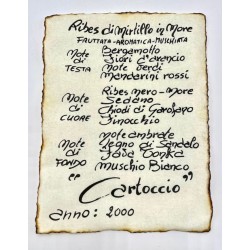 Ribes di Mirtillo in More
FRUTTATA-AROMATICA-MUSCHIATA
Note di TESTA
Bergamotto
Fiori d'arancio
Note verdi
Mandarini rossi
Note di CUORE
Ribes nero-More
Sedano
Chiodi di Garofano
Finocchio
Note di FONDO
Note ambrate
Legno di Sandalo
Fava Tonka
Muschio Bianco
"Cartoccio"
anno: 2000